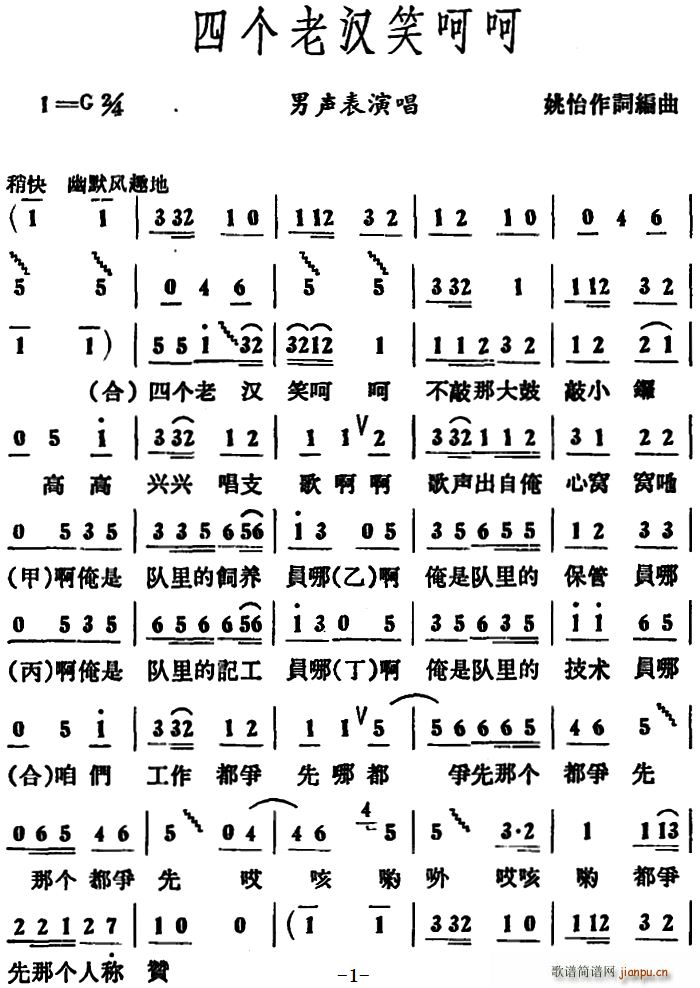 四个老汉笑呵呵
1=G 2/4 男声表演唱 姚怡作詞編曲
稍快 幽默风趣地
(1 1 | 3 32 1 0 | 1 12 3 2 | 1 2 1 0 | 0 4 6 |
5 5 | 0 4 6 | 5 5 | 3 32 1 | 1 12 3 2 |
1 1) | 5 5 i 32 | 32 12 1 | 1 1 2 3 2 | 1 2 2 1 |
(合)四个老 汉 笑呵 呵 不敲那大鼓 敲小 鑼
0 5 i | 3 32 1 2 | 1 1 V 2 | 3 32 1 1 2 | 3 1 2 2 |
高高 兴兴 唱支 歌啊啊 歌声出自俺 心窝 窝吔
0 5 3 5 | 3 3 5 6 56 | i 3 0 5 | 3 5 6 5 5 | 1 2 3 3 |
(甲)啊俺是 队里的飼养 員哪(乙)啊 俺是队里的 保管 員哪
0 5 3 5 | 6 5 6 6 56 | i 3 0 5 | 3 5 6 3 5 | i i 6 5 |
(丙)啊俺是 队里的記工 員哪(丁)啊 俺是队里的 技术 員哪
0 5 i | 3 32 1 2 | 1 1 V 5 | 5 6 6 6 5 | 4 6 5 |
(合)咱們 工作 都爭 先哪都 爭先那个 都爭 先
0 6 5 4 6 | 5 0 4 | 4 6 4 5 | 5 3·2 | 1 1 13 |
那个都爭 先 哎 咳 喲 外 哎咳 喲 都爭
2 2 1 2 7 | 1 0 0 | (1 1 | 3 32 1 0 | 1 12 3 2 |
先那个人称 贊
-1-
歌谱简谱网 jianpu.cn